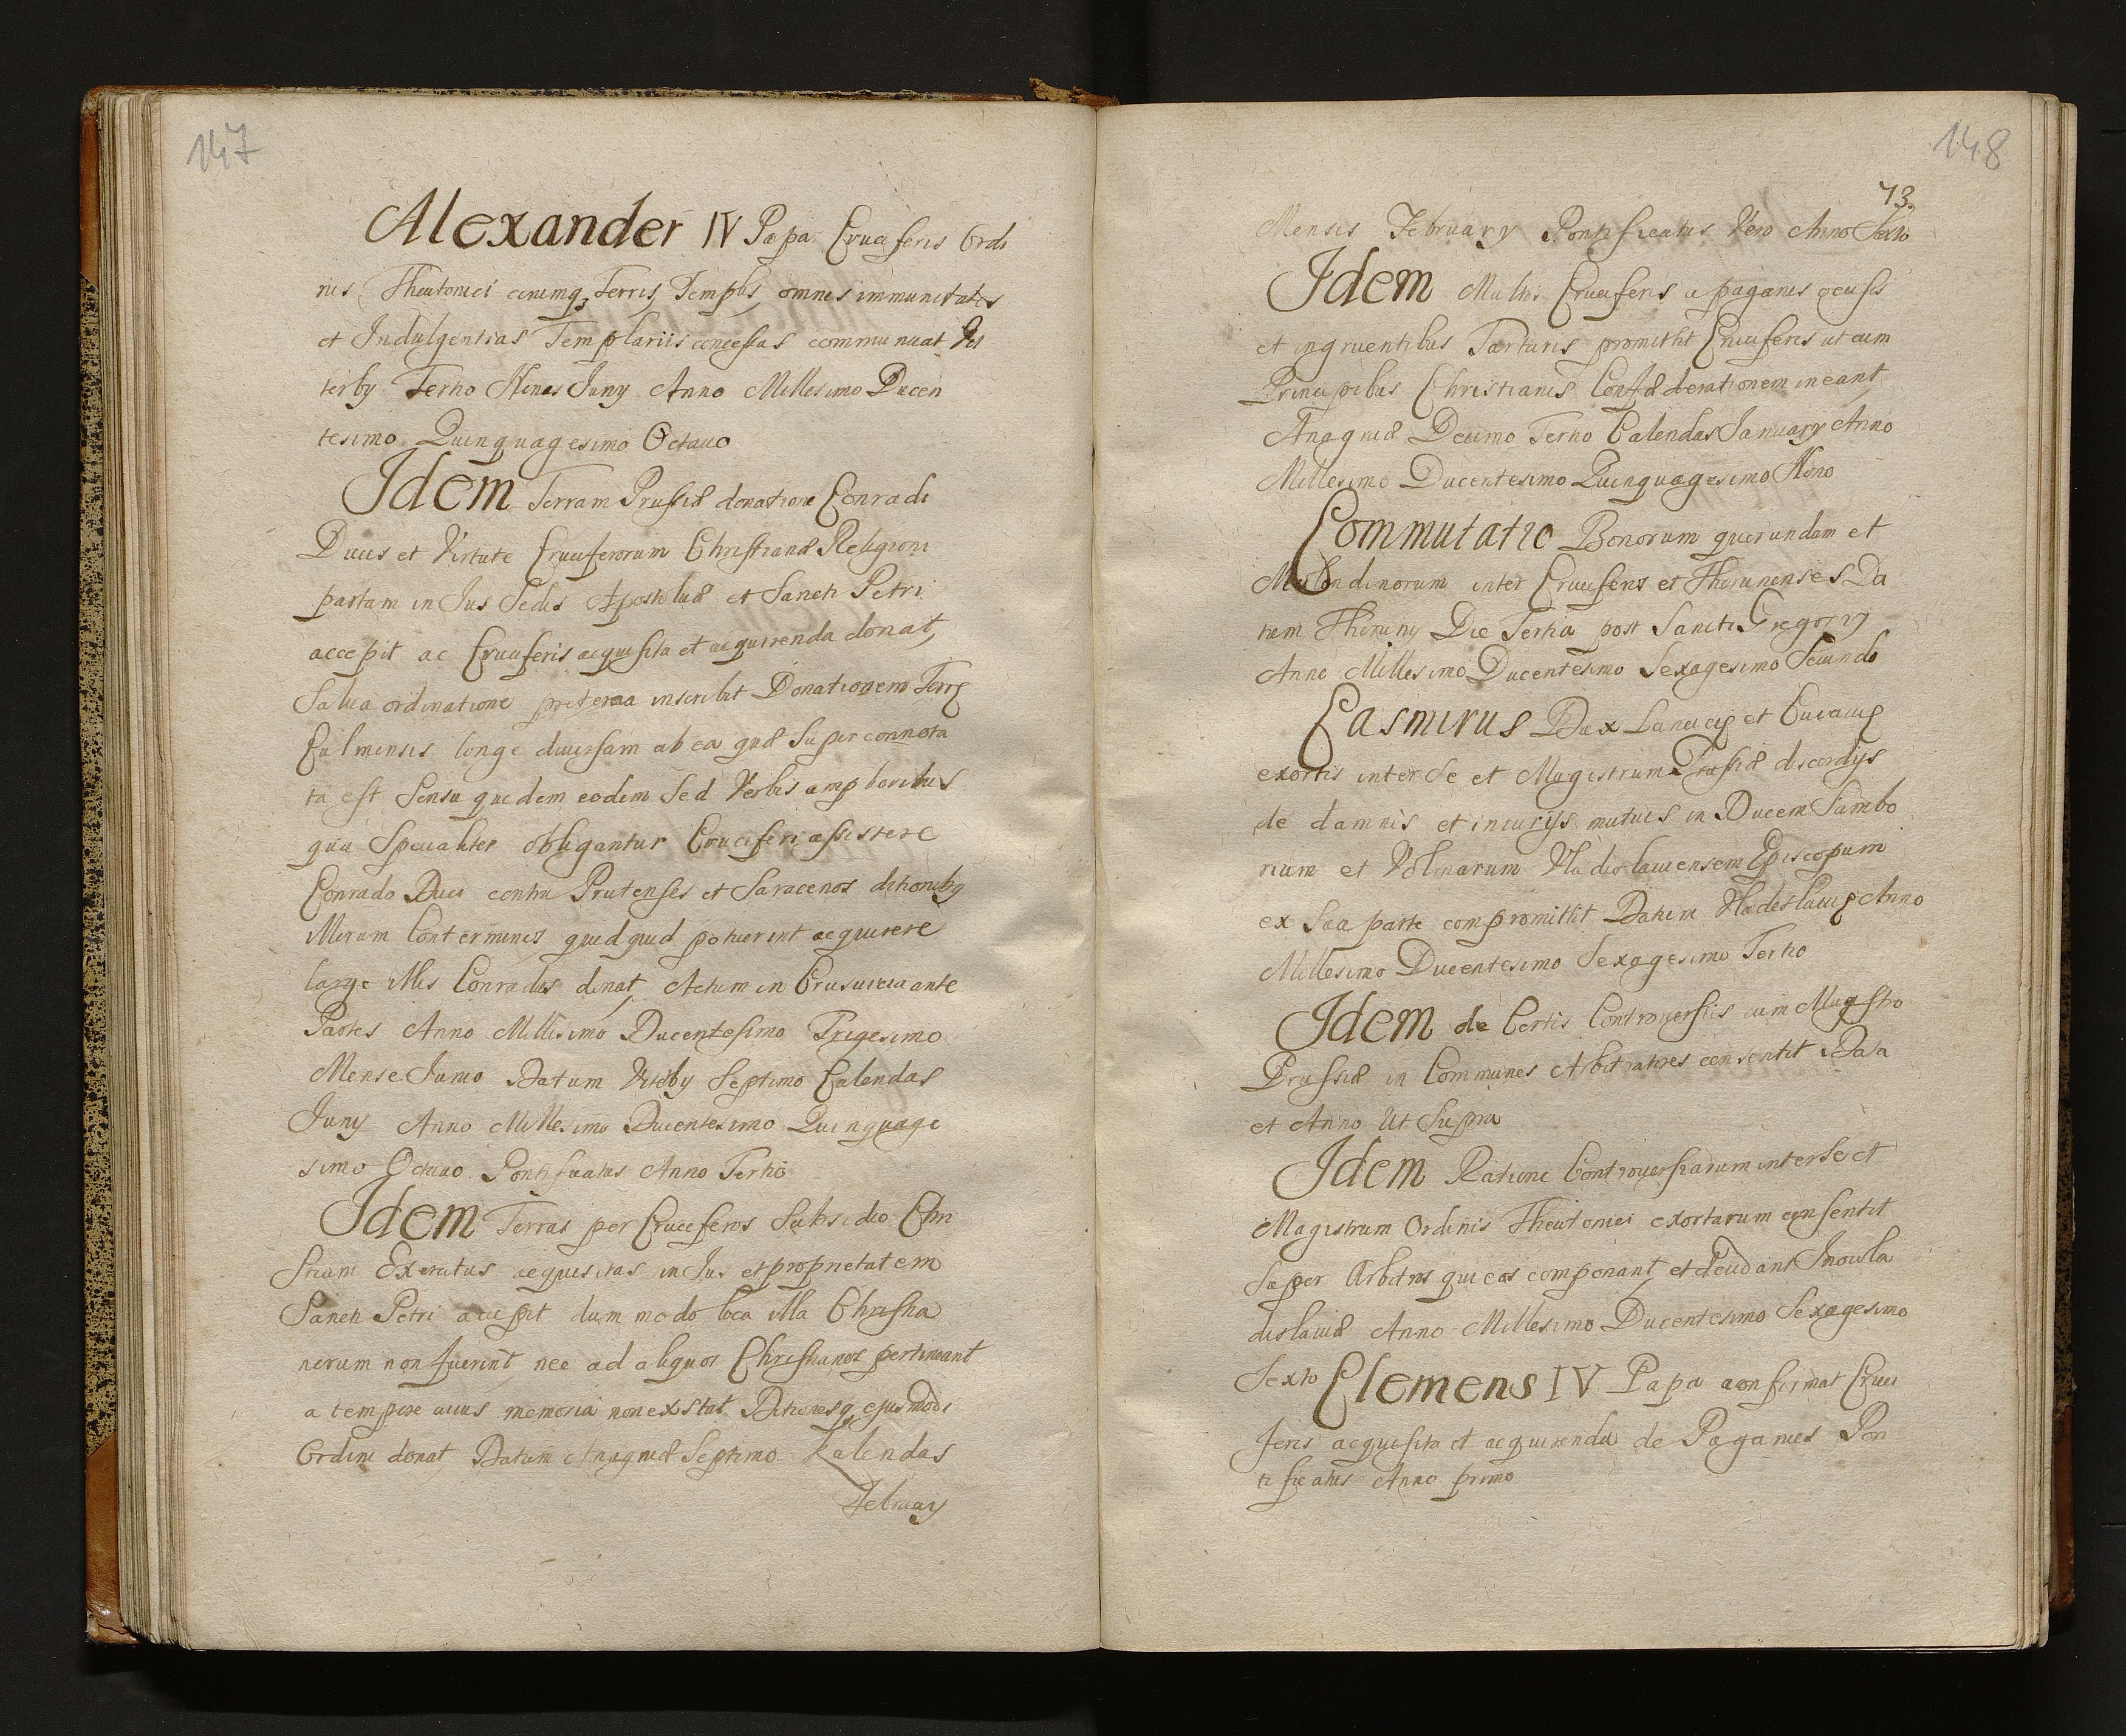 147
Alexander IV Papa Cruciferis Ordi
nis Theutonici eorumq, Terris, Templis, omnes immunitates
et Indulgentias Templariis concessas communicat Vi
terby Tertio Nonas Juny Anno Millesimo Ducen
tesimo Quinquagesimo Octauo
Idem Terram Prussiæ donatione Conradi
Ducis et Virtute Cruciferorum Christianæ Religioni
partam in Jus Sedis Apostolicæ et Sancti Petri
accepit ac Cruciferis acquisita et acquirenda donat,
Salua ordinatione preterea inscribit Donationem Terrę
Culmensis longe diuersam ab ea quæ Super connota
ta est Sensu quidem eodem Sed Verbis amplioribus
qua Specialiter obligantur Cruciferi assistere
Conrado Duci contra Prutenses et Saracenos ditionibq
Illorum Conterminis quidquid potuerint acquirere
large illis Conradus donat, Actum in Crusuicia ante
Partes Anno Millesimo Ducentesimo Trigesimo
Mense Junio Datum Viterby Septimo Calendas
Juny Anno Millesimo Ducentesimo Quinquage
simo Octauo Pontificatus Anno Tertio
Idem Terras per Cruciferos Subsidio Chri
stiani Exercitus acquisitas in Jus et proprietatem
Sancti Petri accepit dum modo loca illa Christia
norum non fuerint, nec ad aliquos Christianos pertineant
a tempore cuius memoria non exstat Ditionesq, ejusmodi
Ordini donat, Datum Anagniæ Septimo Kalendas
February
148
73.
Mensis February Pontificatus Vero Anno Sexto
Idem Multis Cruciferis a paganis occisis
et ingruentibus Tartaris promittit Cruciferis ut cum
Principibus Christianis Confœderationem ineant,
Anagniæ Decimo Tertio Calendas January Anno
Millesimo Ducentesimo Quinquagesimo Nono
Commutatio Bonorum quorundam et
Molendinorum inter Cruciferos et Thorunenses Da
tum Thoruny Die Tertia post Sancti Gregory
Anno Millesimo Ducentesimo Sexagesimo Secundo
Casmirus Dux Lancicię et Cuiauię
exortis inter Se et Magistrum Prussiæ discordijs
de damnis et iniurijs mutuis in Ducem Sambo
rium et Volimarum Vladislauiensem Episcopum
ex Sua parte compromittit Datum Vladislauię Anno
Millesimo Ducentesimo Sexagesimo Tertio
Idem de Certis Controuersiis cum Magistro
Prussiæ in Communes Arbitratores consentit Data
et Anno Ut Supra
Idem Ratione Controuersiarum inter Se et
Magistrum Ordinis Theutonici exortarum consentit
Super Arbitros qui eas componant, et decidant Inoula
dislauiæ Anno Millesimo Ducentesimo Sexagesimo
Sexto Clemens IV Papa confirmat Cruci
feris acquisita et acquirenda de Paganis Pon
tificatus Anno primo